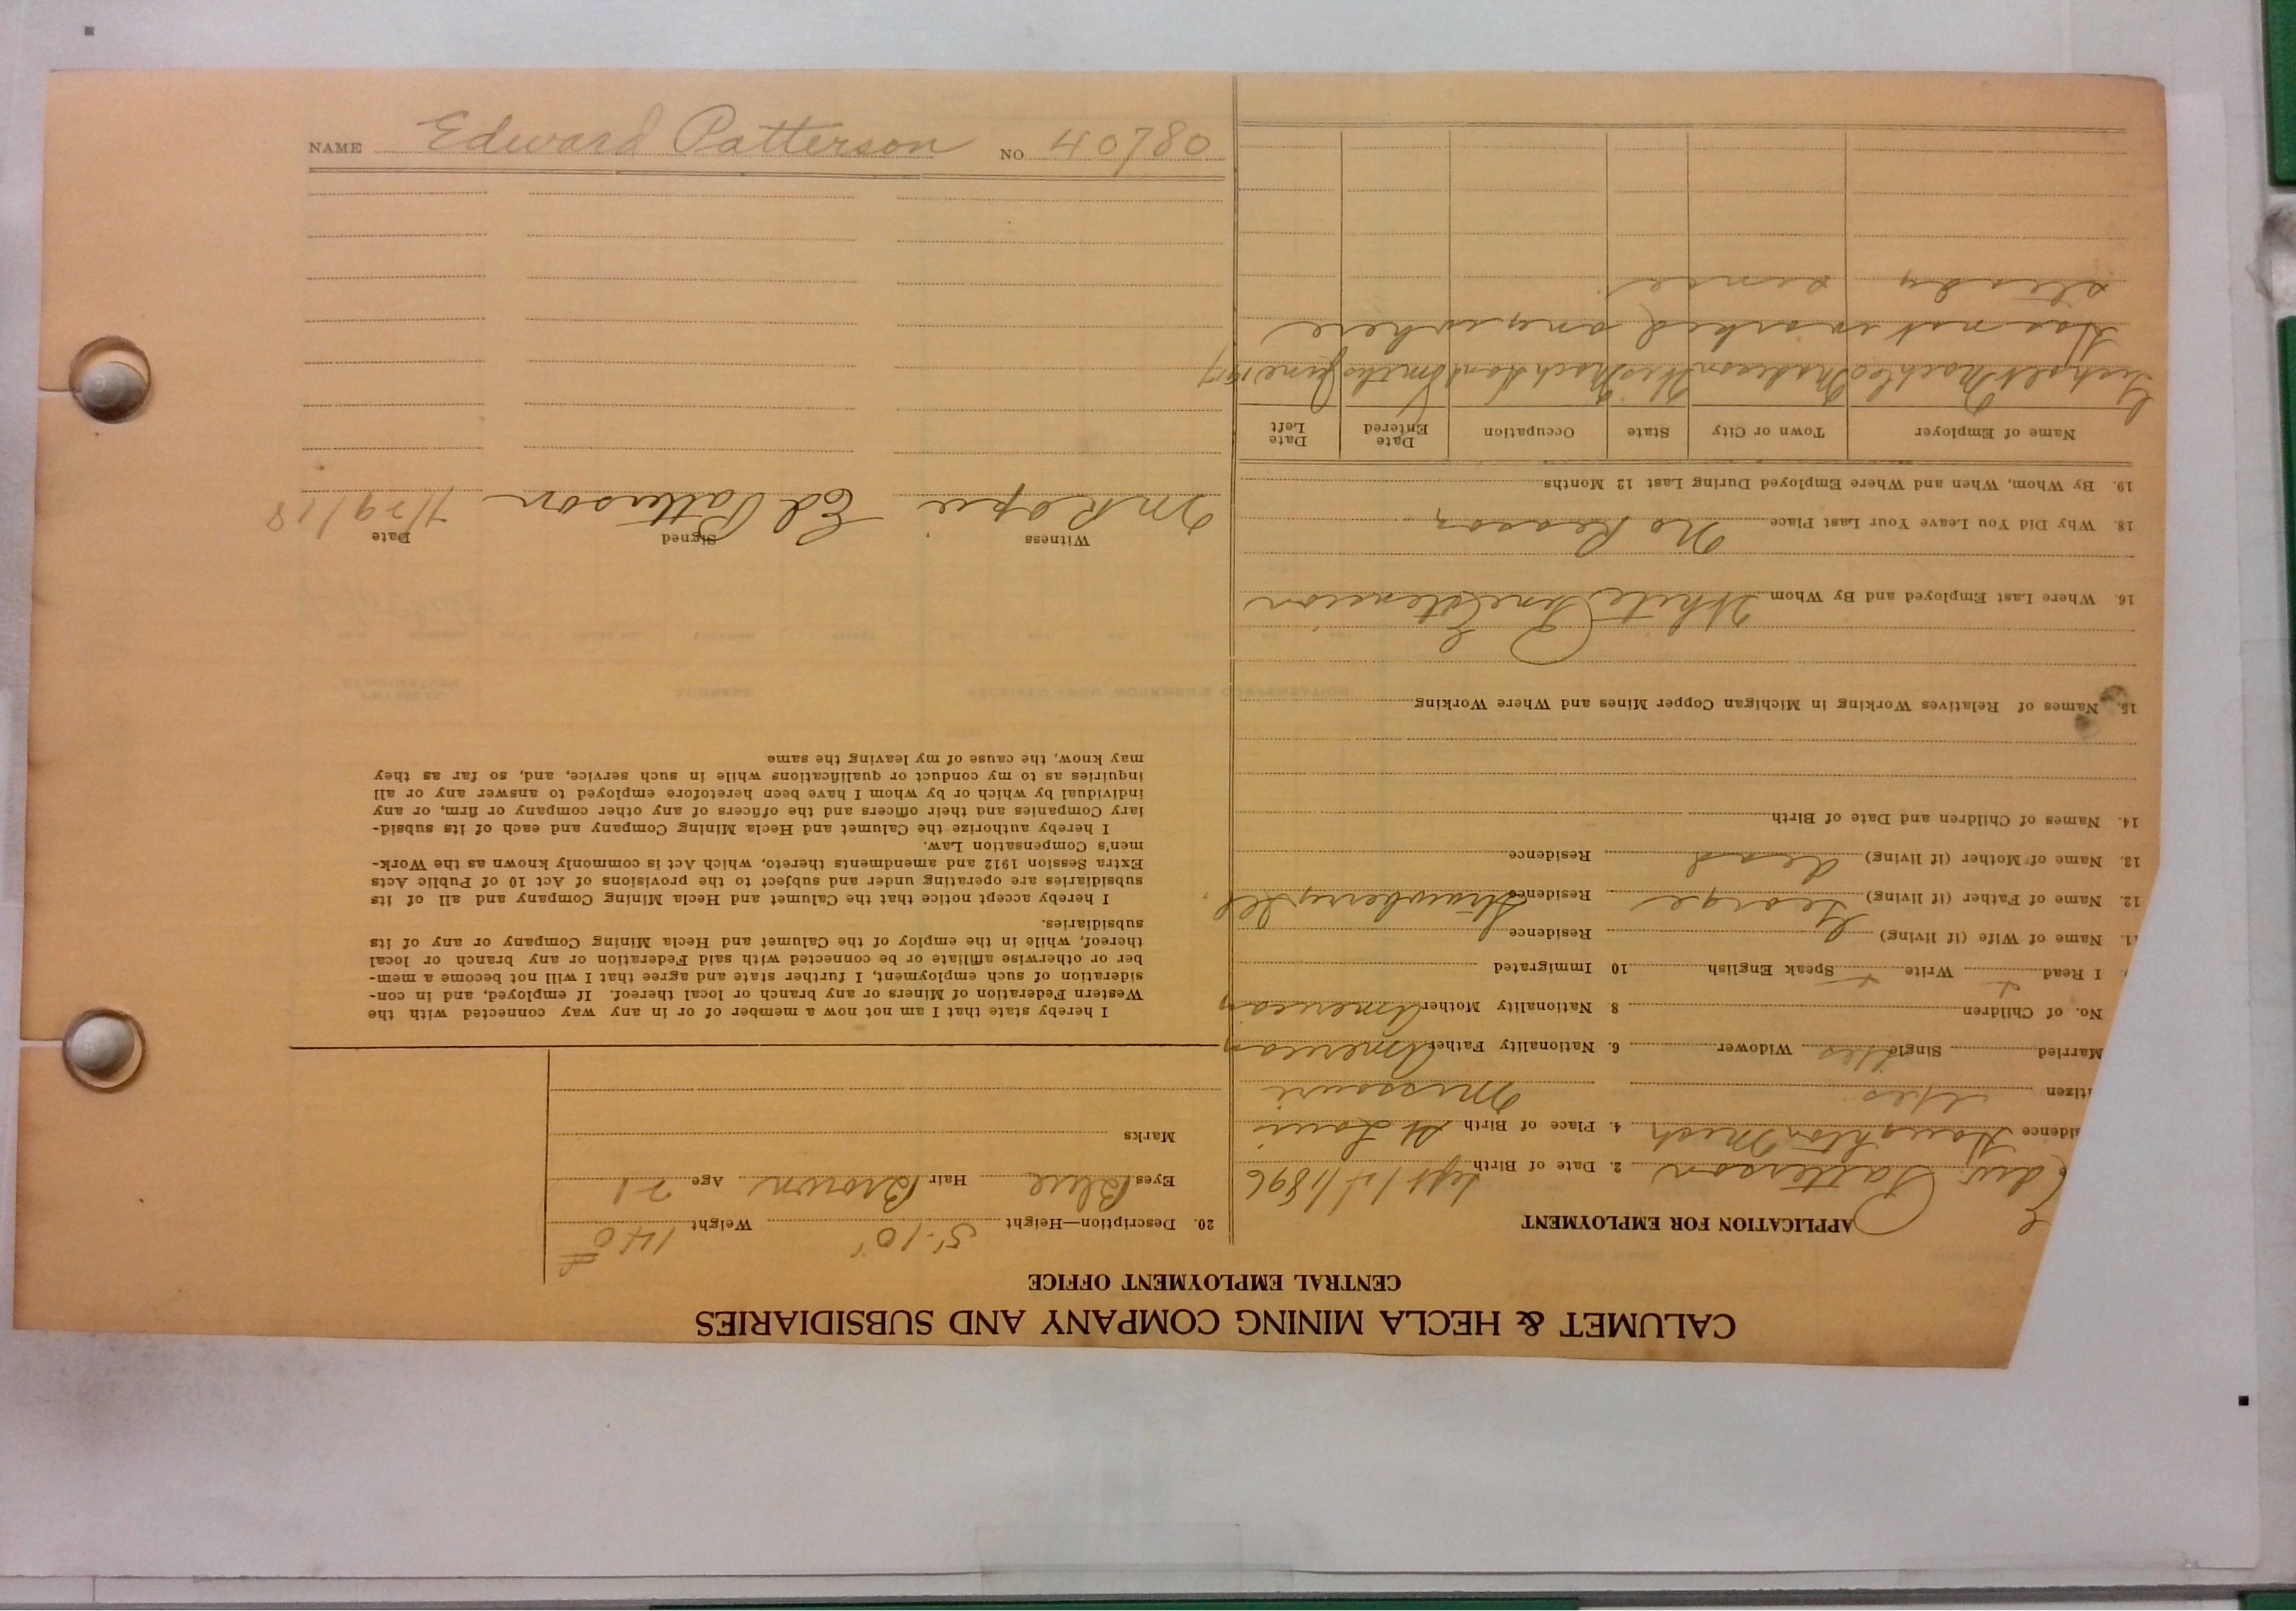 NAME Edward Patterson NO. 40780
CALUMET & HECLA MINING COMPANY AND SUBSIDIARIES
CENTRAL EMPLOYMENT OFFICE
APPLICATION FOR EMPLOYMENT
Edw. Patterson 2. Date of Birth Sept 1st/1896
sidence Houghton Mich 4. Place of Birth St Louis
itizen Yes Missouri
Married Single Yes Widower 6. Nationality Father American
No. of Children 8 Nationality Mother American
I Read Write Speak English 10 Immigrated
11. Name of Wife (if living) Residence
12. Name of Father (if living) George Residence Strawberry
13. Name of Mother (if living) dead Residence
14. Names of Children and Date of Birth
15. Names of Relatives Working in Michigan Copper Mines and Where Working
16. Where Last Employed and By Whom White Pine Extension
18. Why Did You Leave Your Last Place No Reason
19. By Whom, When and Where Employed During Last 12 Months
Name of Employer Town or City State Occupation Date Entered Date Left
Gisholt Machine Madison Wis Mach June 1917
Has not worked anywhere
steady since
20. Description—Height 5'-10" Weight 140#
Eyes Blue Hair Brown Age 21
Marks
I hereby state that I am not now a member of or in any way connected with the
Western Federation of Miners or any branch or local thereof. If employed, and in con-
sideration of such employment, I further state and agree that I will not become a mem-
ber or otherwise affiliate or be connected with said Federation or any branch or local
thereof, while in the employ of the Calumet and Hecla Mining Company or any of its
subsidiaries.
I hereby accept notice that the Calumet and Hecla Mining Company and all of its
subsidiaries are operating under and subject to the provisions of Act 10 of Public Acts
Extra Session 1912 and amendments thereto, which Act is commonly known as the Work-
men's Compensation Law.
I hereby authorize the Calumet and Hecla Mining Company and each of its subsid-
iary Companies and their officers and the officers of any other company or firm, or any
individual by which or by whom I have been heretofore employed to answer any or all
inquiries as to my conduct or qualifications while in such service, and, so far as they
may know, the cause of my leaving the same.
Witness Signed Date
Ed Patterson 7/29/18